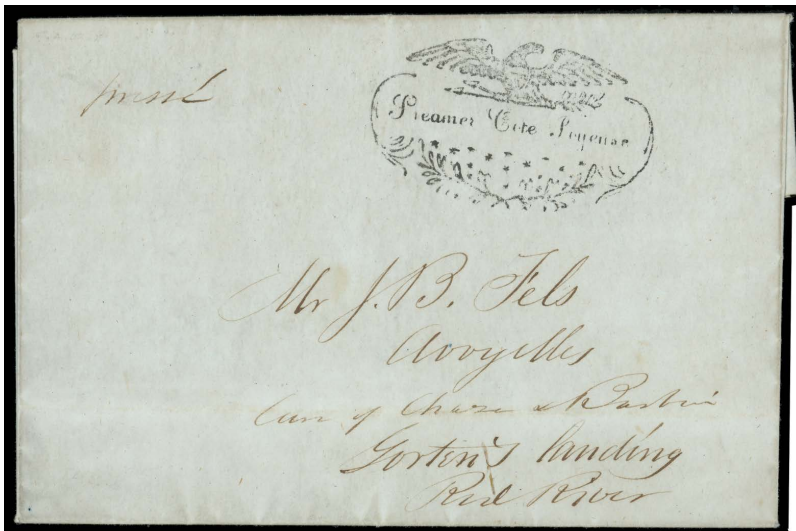 Steamer Cote Joyeuse
Mr J. B. Fels
Avoyelles
Care of Chase & Barbin
Gorton's landing
Red River